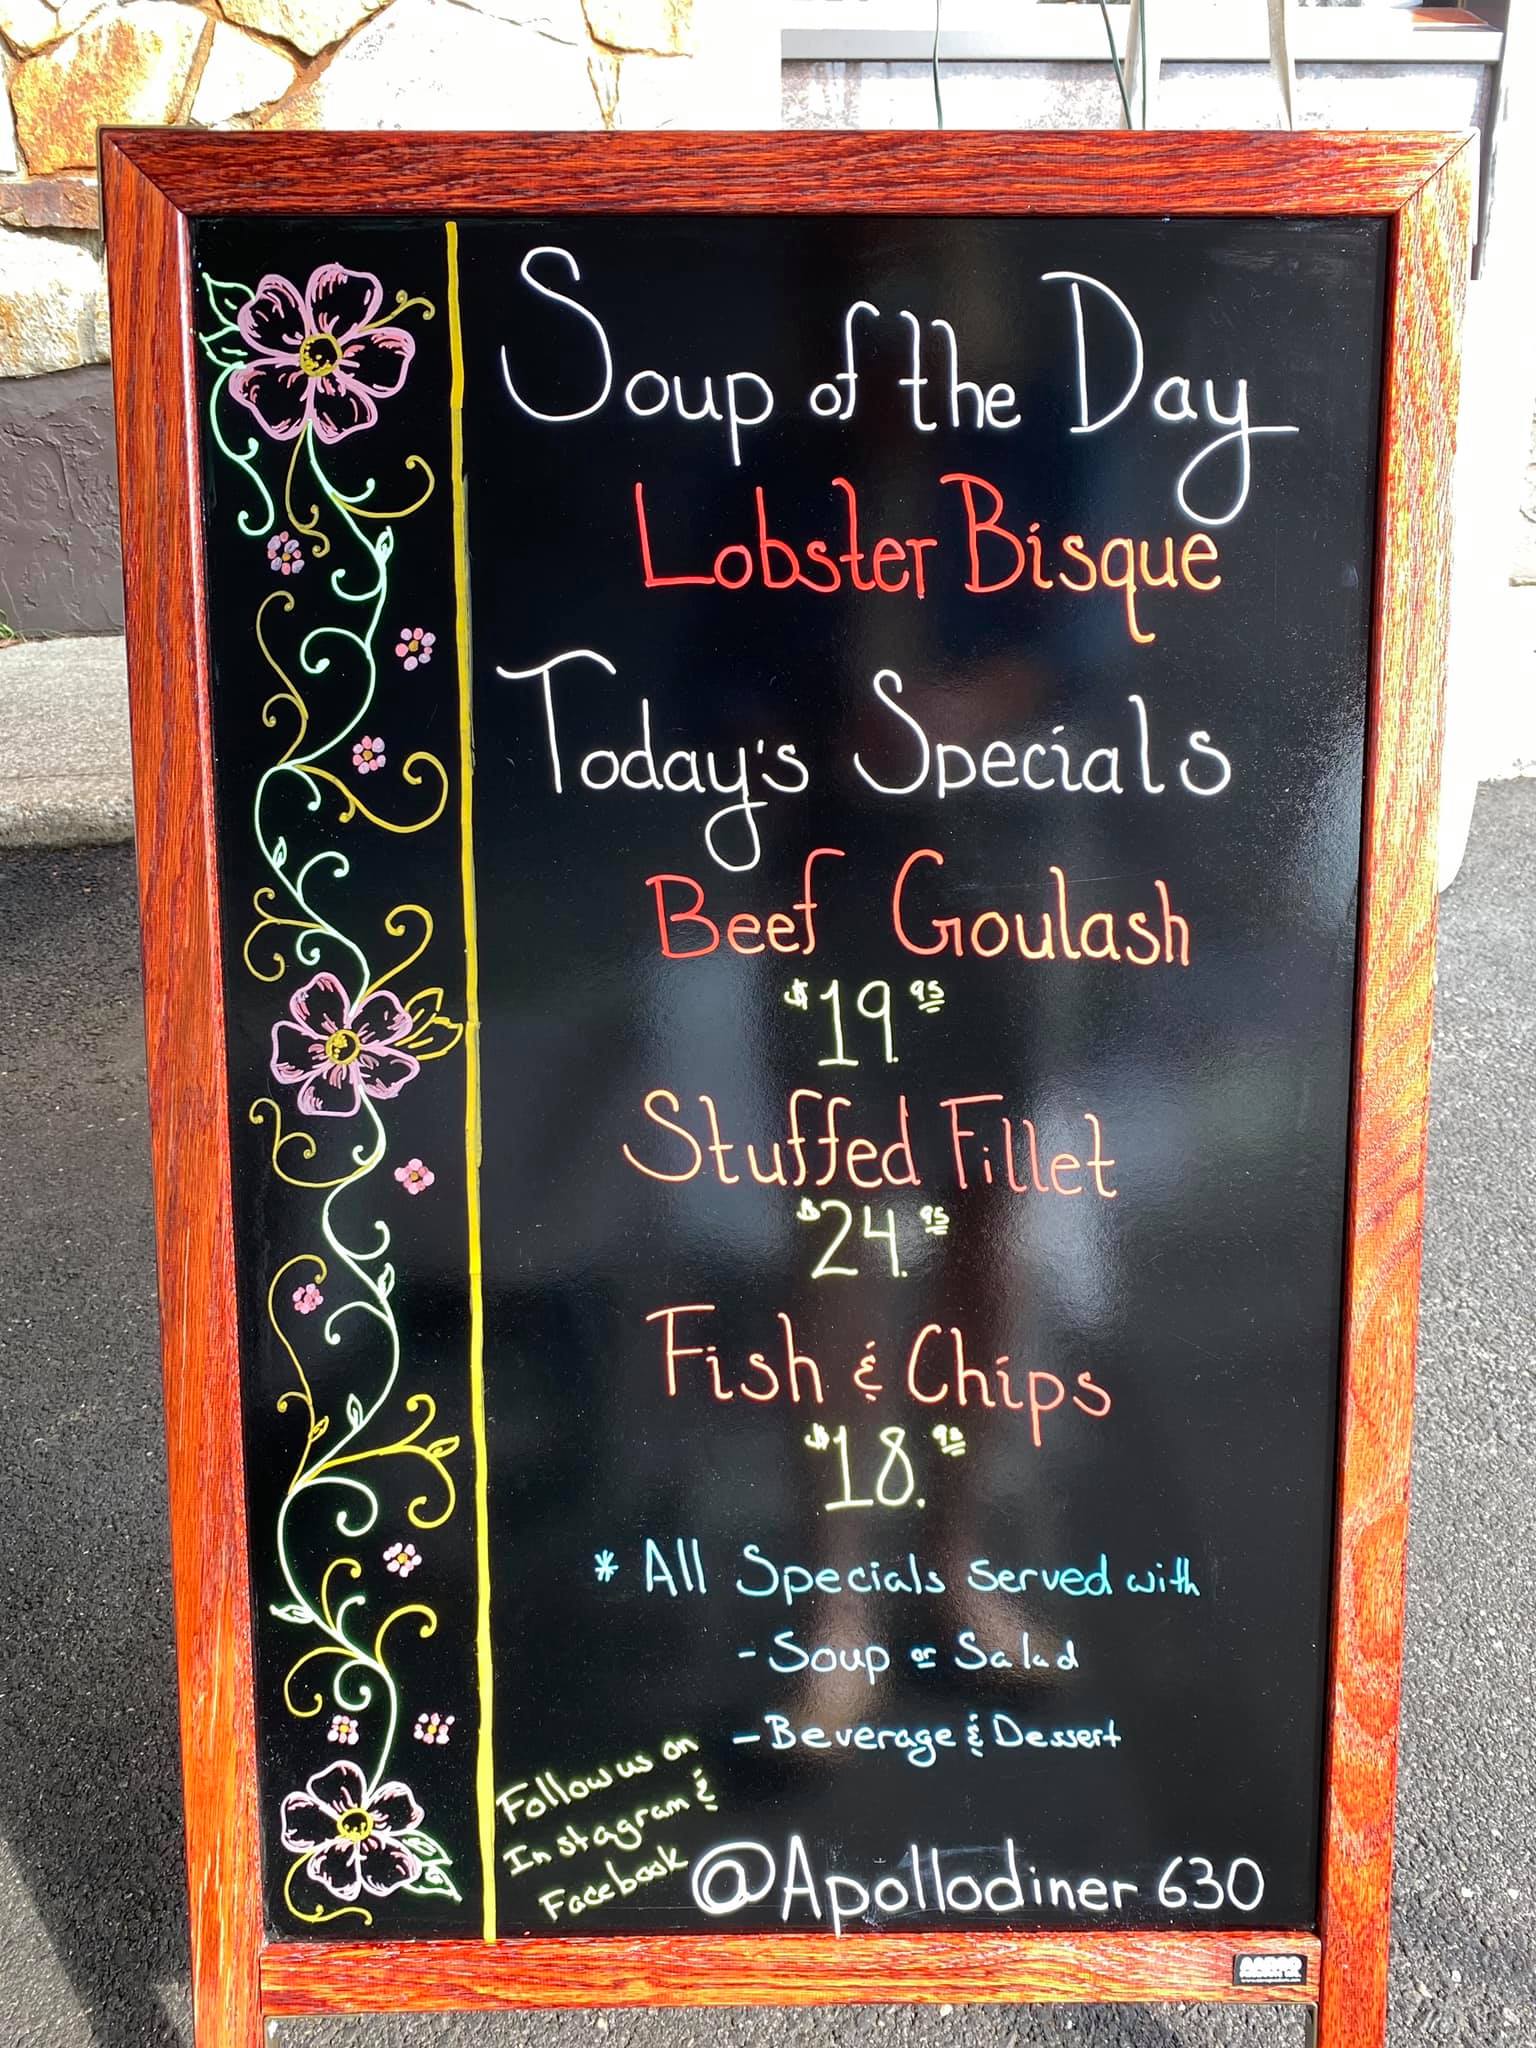 Soup of the Day
Lobster Bisque
Today's Specials
Beef Goulash
$19.95
Stuffed Fillet
$24.95
Fish & Chips
$18.95
* All Specials served with
- Soup or Salad
- Beverage & Dessert
Follow us on
Instagram &
Facebook
@Apollodiner 630